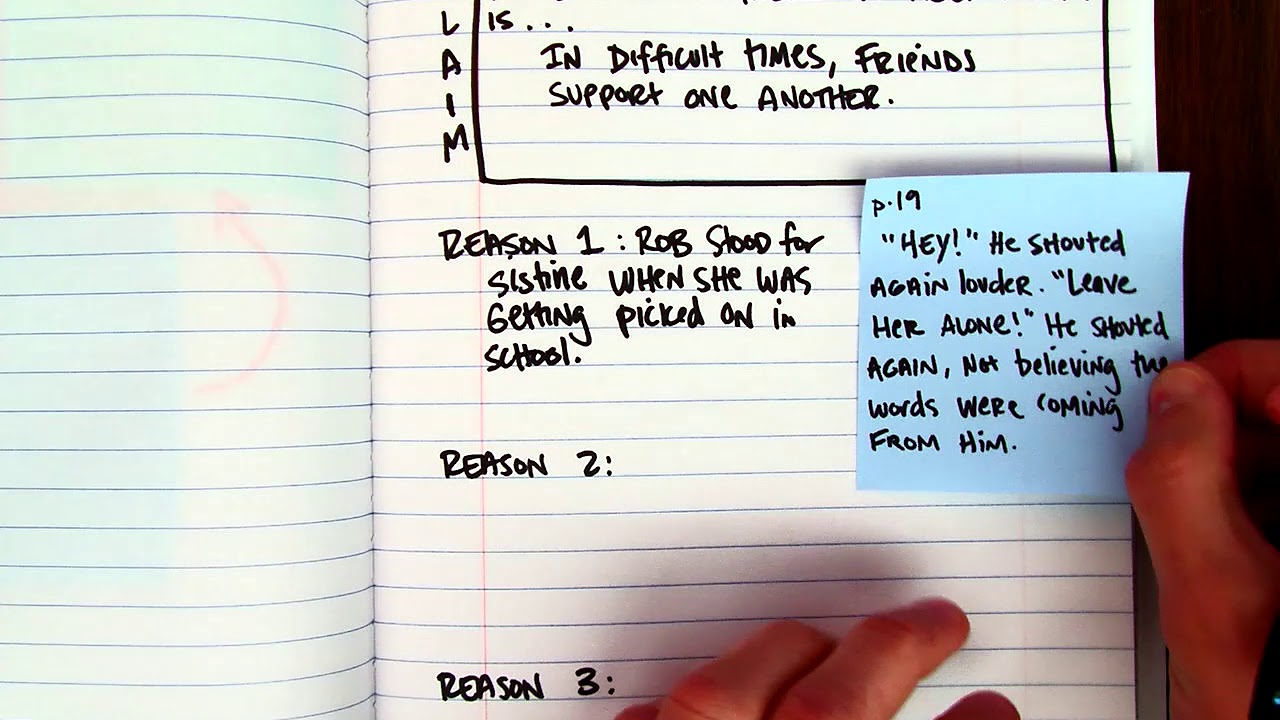 L
A
I
M
is...
In difficult times, friends
support one another.
Reason 1: Rob stood for
Sistine when she was
getting picked on in
school.
Reason 2:
Reason 3:
p.19
"Hey!" He shouted
again louder. "Leave
her alone!" He shouted
again, not believing the
words were coming
from him.